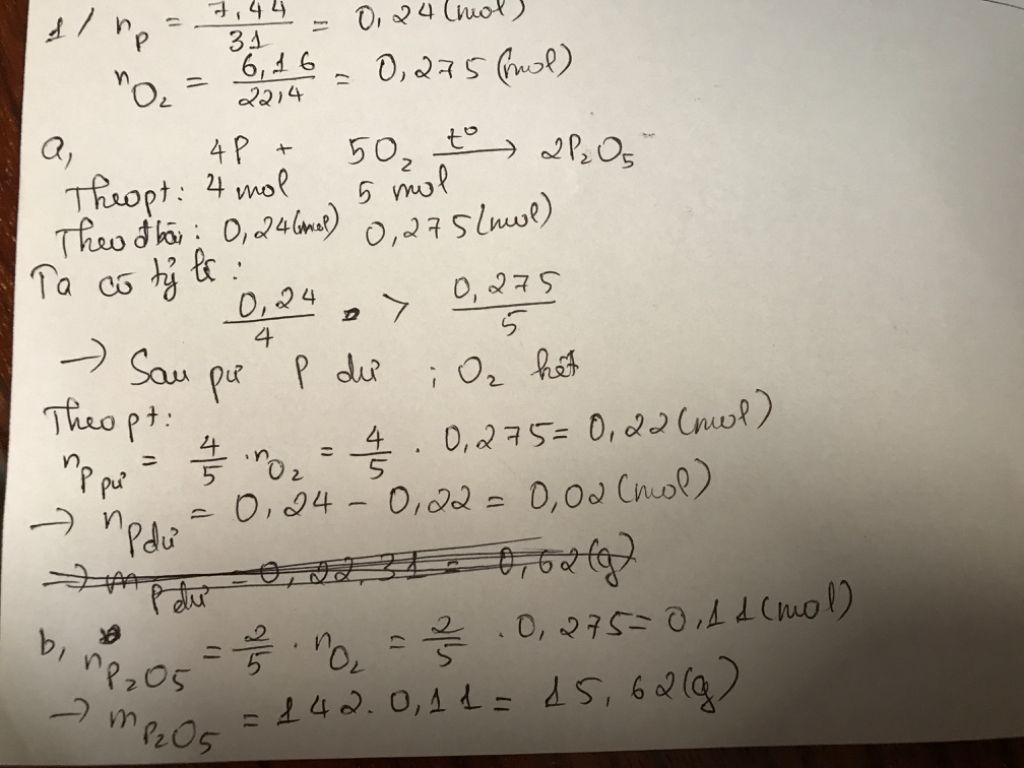 1/ nP = 7,44/31 = 0,24 (mol)
nO2 = 6,16/22,4 = 0,275 (mol)
a, 4P + 5O2 t° → 2P2O5
Theo pt: 4 mol 5 mol
Theo đbài: 0,24 (mol) 0,275 (mol)
Ta có tỷ lệ:
0,24/4 > 0,275/5
→ Sau pư P dư ; O2 hết
Theo pt:
nP pư = 4/5 . nO2 = 4/5 . 0,275 = 0,22 (mol)
→ nP dư = 0,24 - 0,22 = 0,02 (mol)
→ mP dư = 0,22.31 = 0,62 (g)
b, nP2O5 = 2/5 . nO2 = 2/5 . 0,275 = 0,11 (mol)
→ mP2O5 = 142. 0,11 = 15,62 (g)